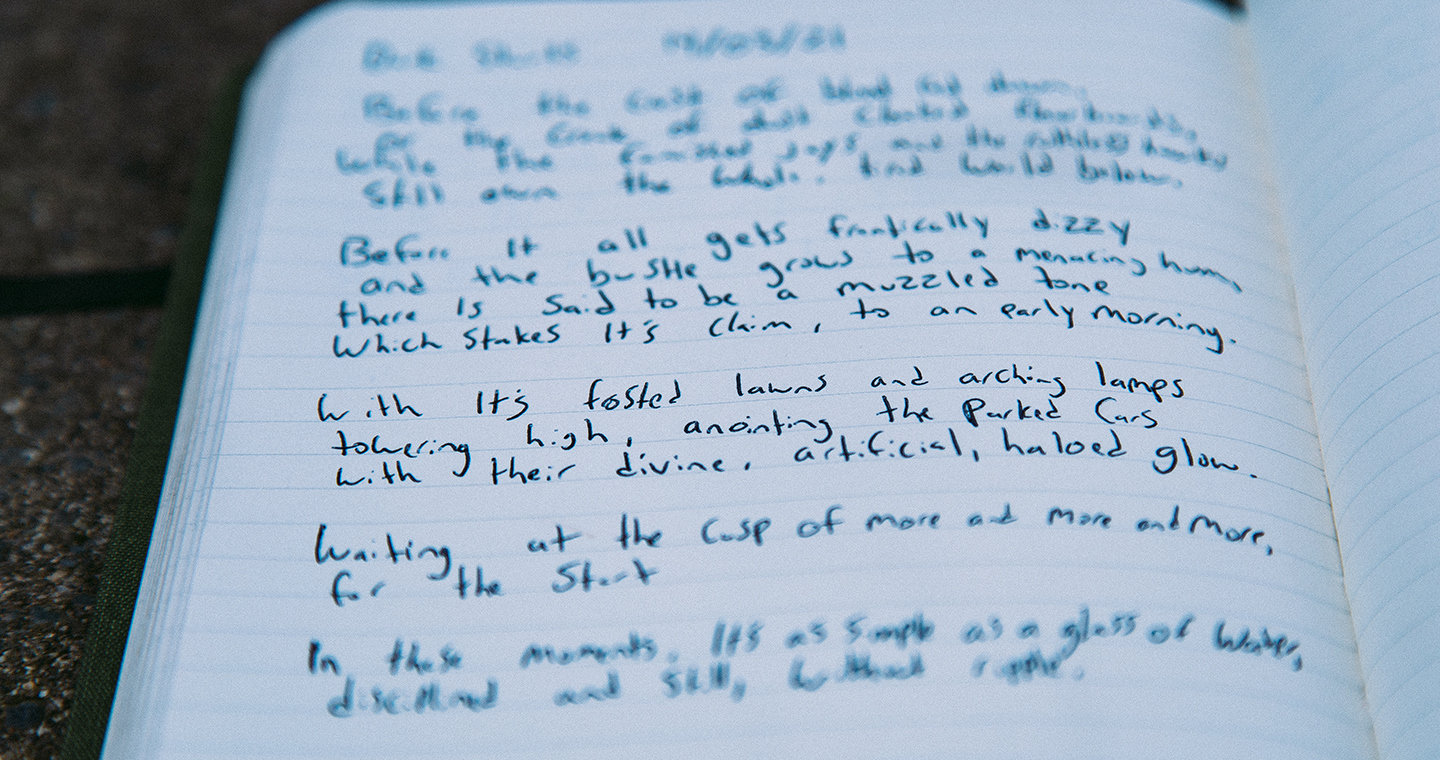 Before the
of
While the and the
Still own the world below.
Before It all gets frantically dizzy
and the bustle grows to a menacing hum,
there Is Said to be a muzzled tone
Which Stakes It's Claim, to an early morning.
With It's fosted lawns and arching lamps
towering high, anointing the Parked Cars
with their divine, artificial, haloed glow.
Waiting at the Cusp of more and more and More,
for the Start
In these moments, It's as Simple as a glass of Water,
and Still, without ripple.